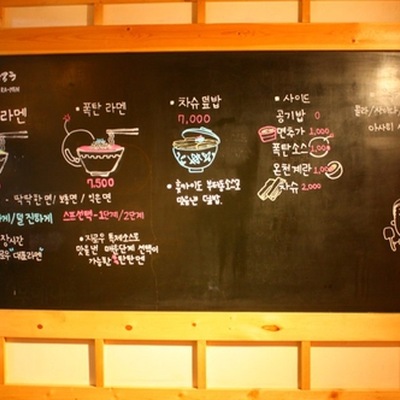 라멘
· 폭탄 라멘
7,500
- 딱딱한면 / 보통면 / 익은면
하게/덜 진하게 스프선택-1단계/2단계
장시간
"대표라멘"
· 지로우 특제소스로
맛을낸 매운단계 선택이
가능한 폭탄라면
· 차슈덮밥
7,000
· 홋카이도 부타동소스로
맛을낸 덮밥.
· 사이드
공기밥 0
면추가 1,000
폭탄소스 1,000
온천계란 1,000
차슈 2,000
콜라/사이다/
아사히